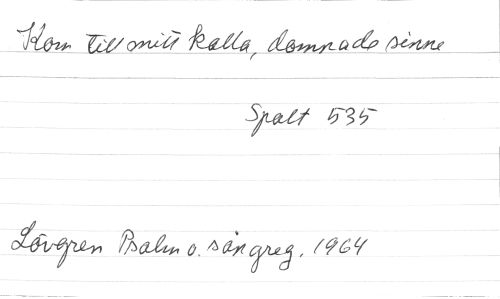 Kom till mitt kalla, domnade sinne
Spalt 535
Lövgren Psalm o. sångreg. 1964